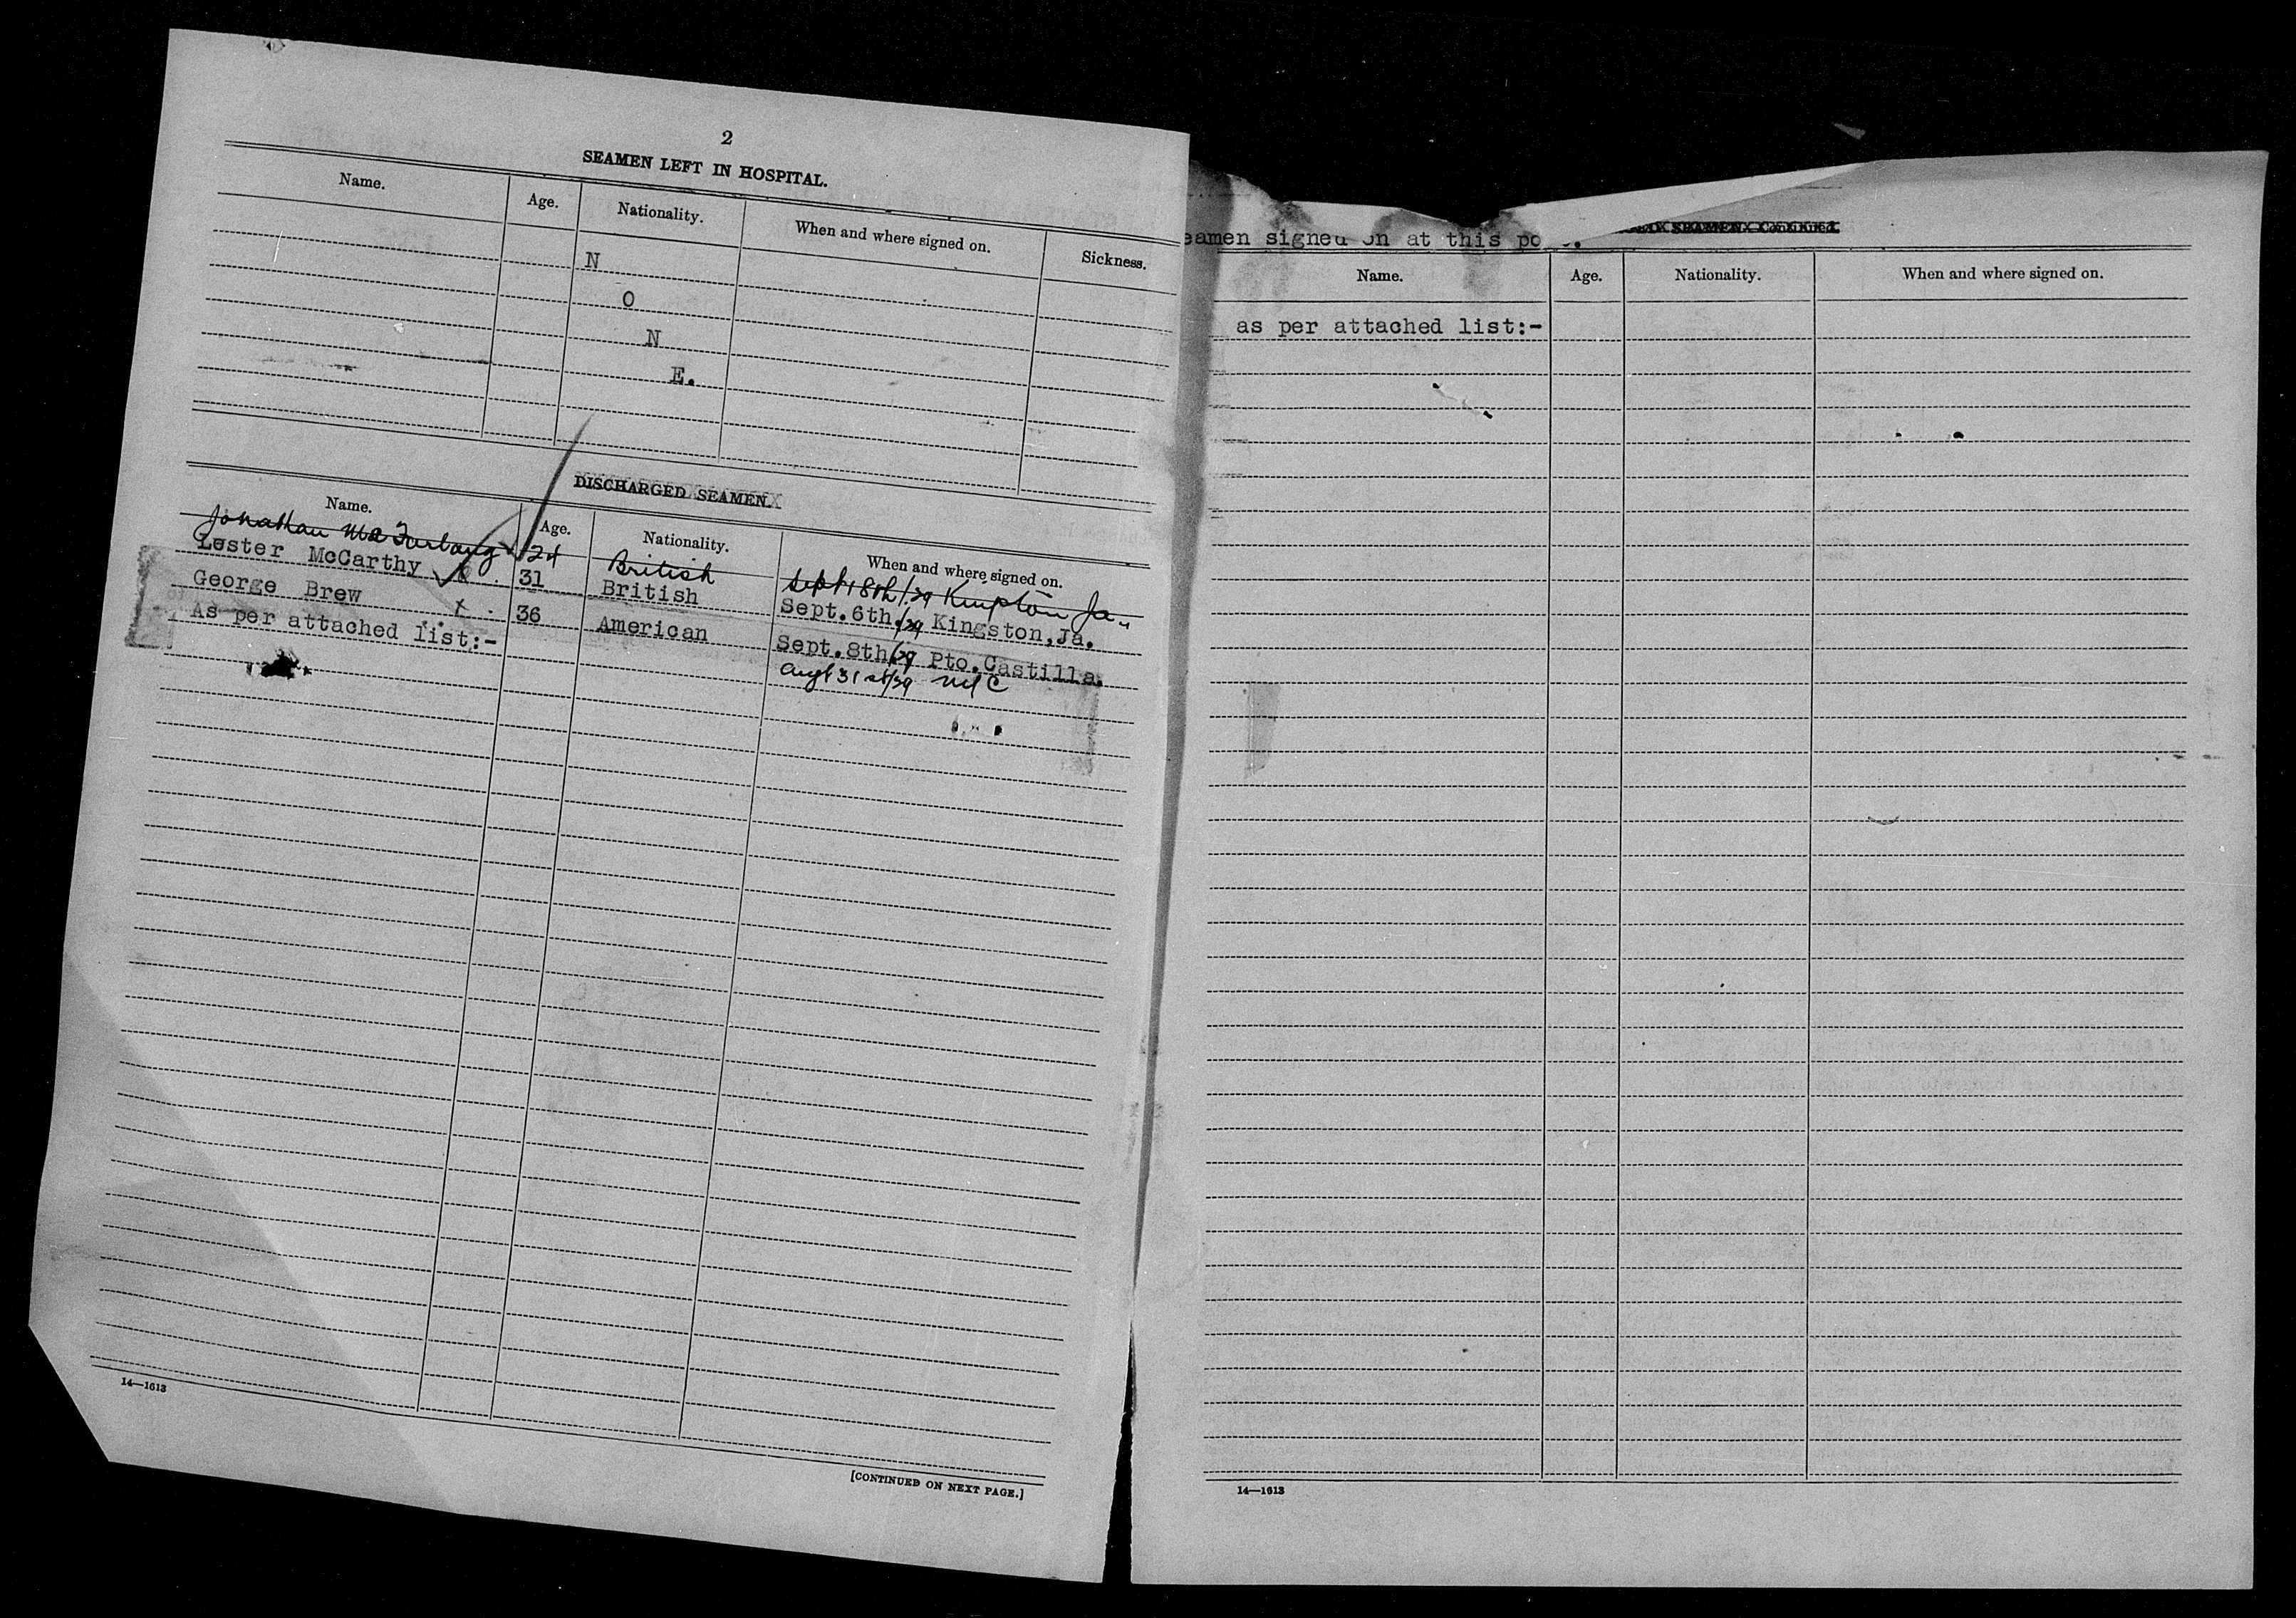 2
SEAMEN LEFT IN HOSPITAL.
Name. Age. Nationality. When and where signed on. Sickness.
N
O
N
E.
DISCHARGED SEAMEN.
Name. Age. Nationality. When and where signed on.
Jonathan 24 British Sept 18th/29 Kingston Ja.
Lester McCarthy x 31 British Sept.6th/29 Kingston,Ja.
George Brew x 36 American Sept.8th/29 Pto.Castilla.
As per attached list:- Augt 31st/29 NYC
14—1613
[CONTINUED ON NEXT PAGE.]
eamen signed on at this po
SEAMEN Continued.
Name. Age. Nationality. When and where signed on.
as per attached list:-
14—1613